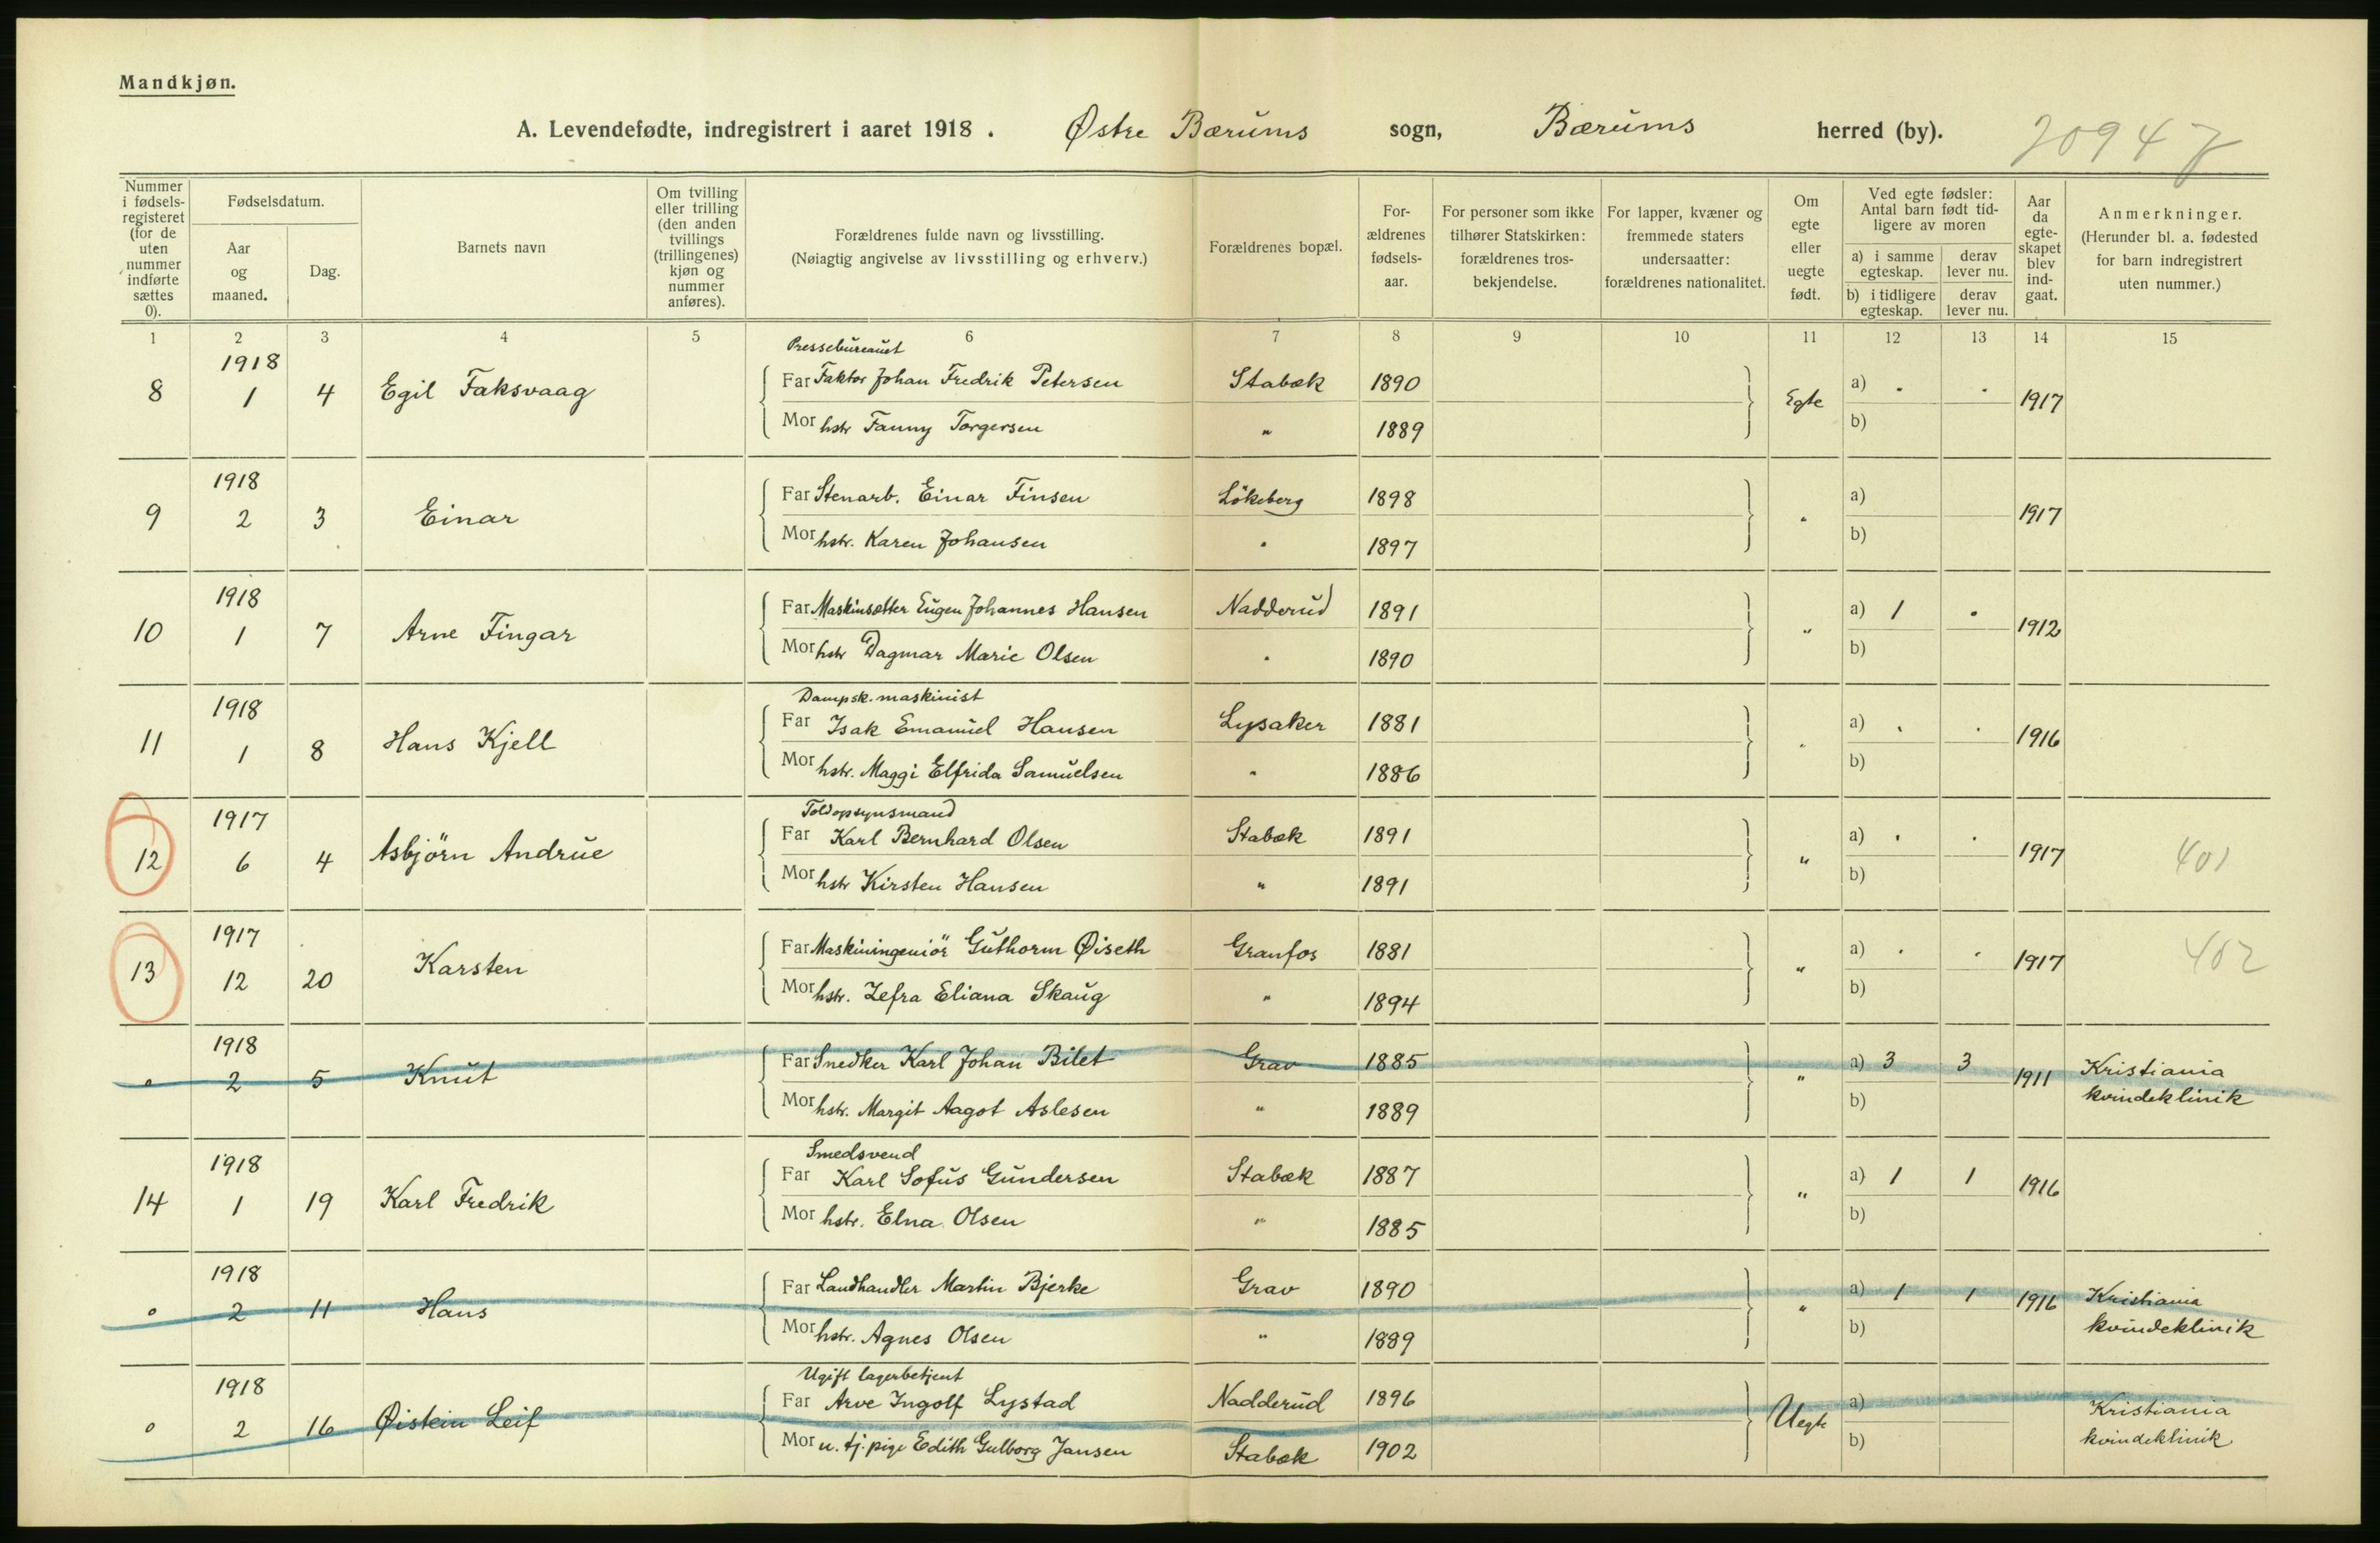 Mandkjøn.
A. Levendefødte, indregistrert i aaret 1918 . Østre Bærums sogn, Bærums herred (by). 20947
Nummer i fødsels-registeret (for de uten nummer indførte sættes 0).
Fødselsdatum.
Aar og maaned.
Dag.
Barnets navn
Om tvilling eller trilling (den anden tvillings (trillingenes) kjøn og nummer anføres).
Forældrenes fulde navn og livsstilling.
(Nøiagtig angivelse av livsstilling og erhverv.)
Forældrenes bopæl.
For-ældrenes fødsels-aar.
For personer som ikke tilhører Statskirken: forældrenes tros-bekjendelse.
For lapper, kvæner og fremmede staters undersaatter: forældrenes nationalitet.
Om egte eller uegte født.
Ved egte fødsler: Antal barn født tid-ligere av moren
a) i samme egteskap. derav lever nu.
b) i tidligere egteskap. derav lever nu.
Aar da egte-skapet blev ind-gaat.
Anmerkninger.
(Herunder bl. a. fødested for barn indregistrert uten nummer.)
1 2 3 4 5 6 7 8 9 10 11 12 13 14 15
1918 Pressebureauet
8 1 4 Egil Faksvaag Far Faktor Johan Fredrik Petersen Stabæk 1890 Egte a) . . 1917
Mor hstr Fanny Torgersen " 1889 b)
1918
9 2 3 Einar Far Stenarb. Einar Finsen Løkeberg 1898 " a) 1917
Mor hstr. Karen Johansen " 1897 b)
1918
10 1 7 Arne Fingar Far Maskinsætter Eugen Johannes Hansen Nadderud 1891 " a) 1 . 1912
Mor hstr Dagmar Marie Olsen " 1890 b)
1918 Dampsk. maskinist
11 1 8 Hans Kjell Far Isak Emanuel Hansen Lysaker 1881 " a) . . 1916
Mor hstr. Maggi Elfrida Samuelsen " 1886 b)
1917 Toldopsynsmand
12 6 4 Asbjörn Andrue Far Karl Bernhard Olsen Stabæk 1891 " a) . . 1917 401
Mor hstr Kirsten Hansen " 1891 b)
1917
13 12 20 Karsten Far Maskiningeniör Guthorm Øiseth Granfos 1881 " a) . . 1917 402
Mor hstr. Zefra Eliana Skaug " 1894 b)
1918
0 2 5 Knut Far Snedker Karl Johan Bilet Grav 1885 " a) 3 3 1911 Kristiania
Mor hstr. Margit Aagot Aslesen " 1889 b) kvindeklinik
1918 Smedsvend
14 1 19 Karl Fredrik Far Karl Sofus Gundersen Stabæk 1887 " a) 1 1 1916
Mor hstr. Elna Olsen " 1885 b)
1918
0 2 11 Hans Far Landhandler Martin Bjerke Grav 1890 " a) 1 1 1916 Kristiania
Mor hstr. Agnes Olsen " 1889 b) kvindeklinik
1918 Ugift lagerbetjent
0 2 16 Øistein Leif Far Arve Ingolf Lystad Nadderud 1896 Uegte a) Kristiania
Mor u. tj. pige Edith Gulborg Jansen Stabæk 1902 b) kvindeklinik